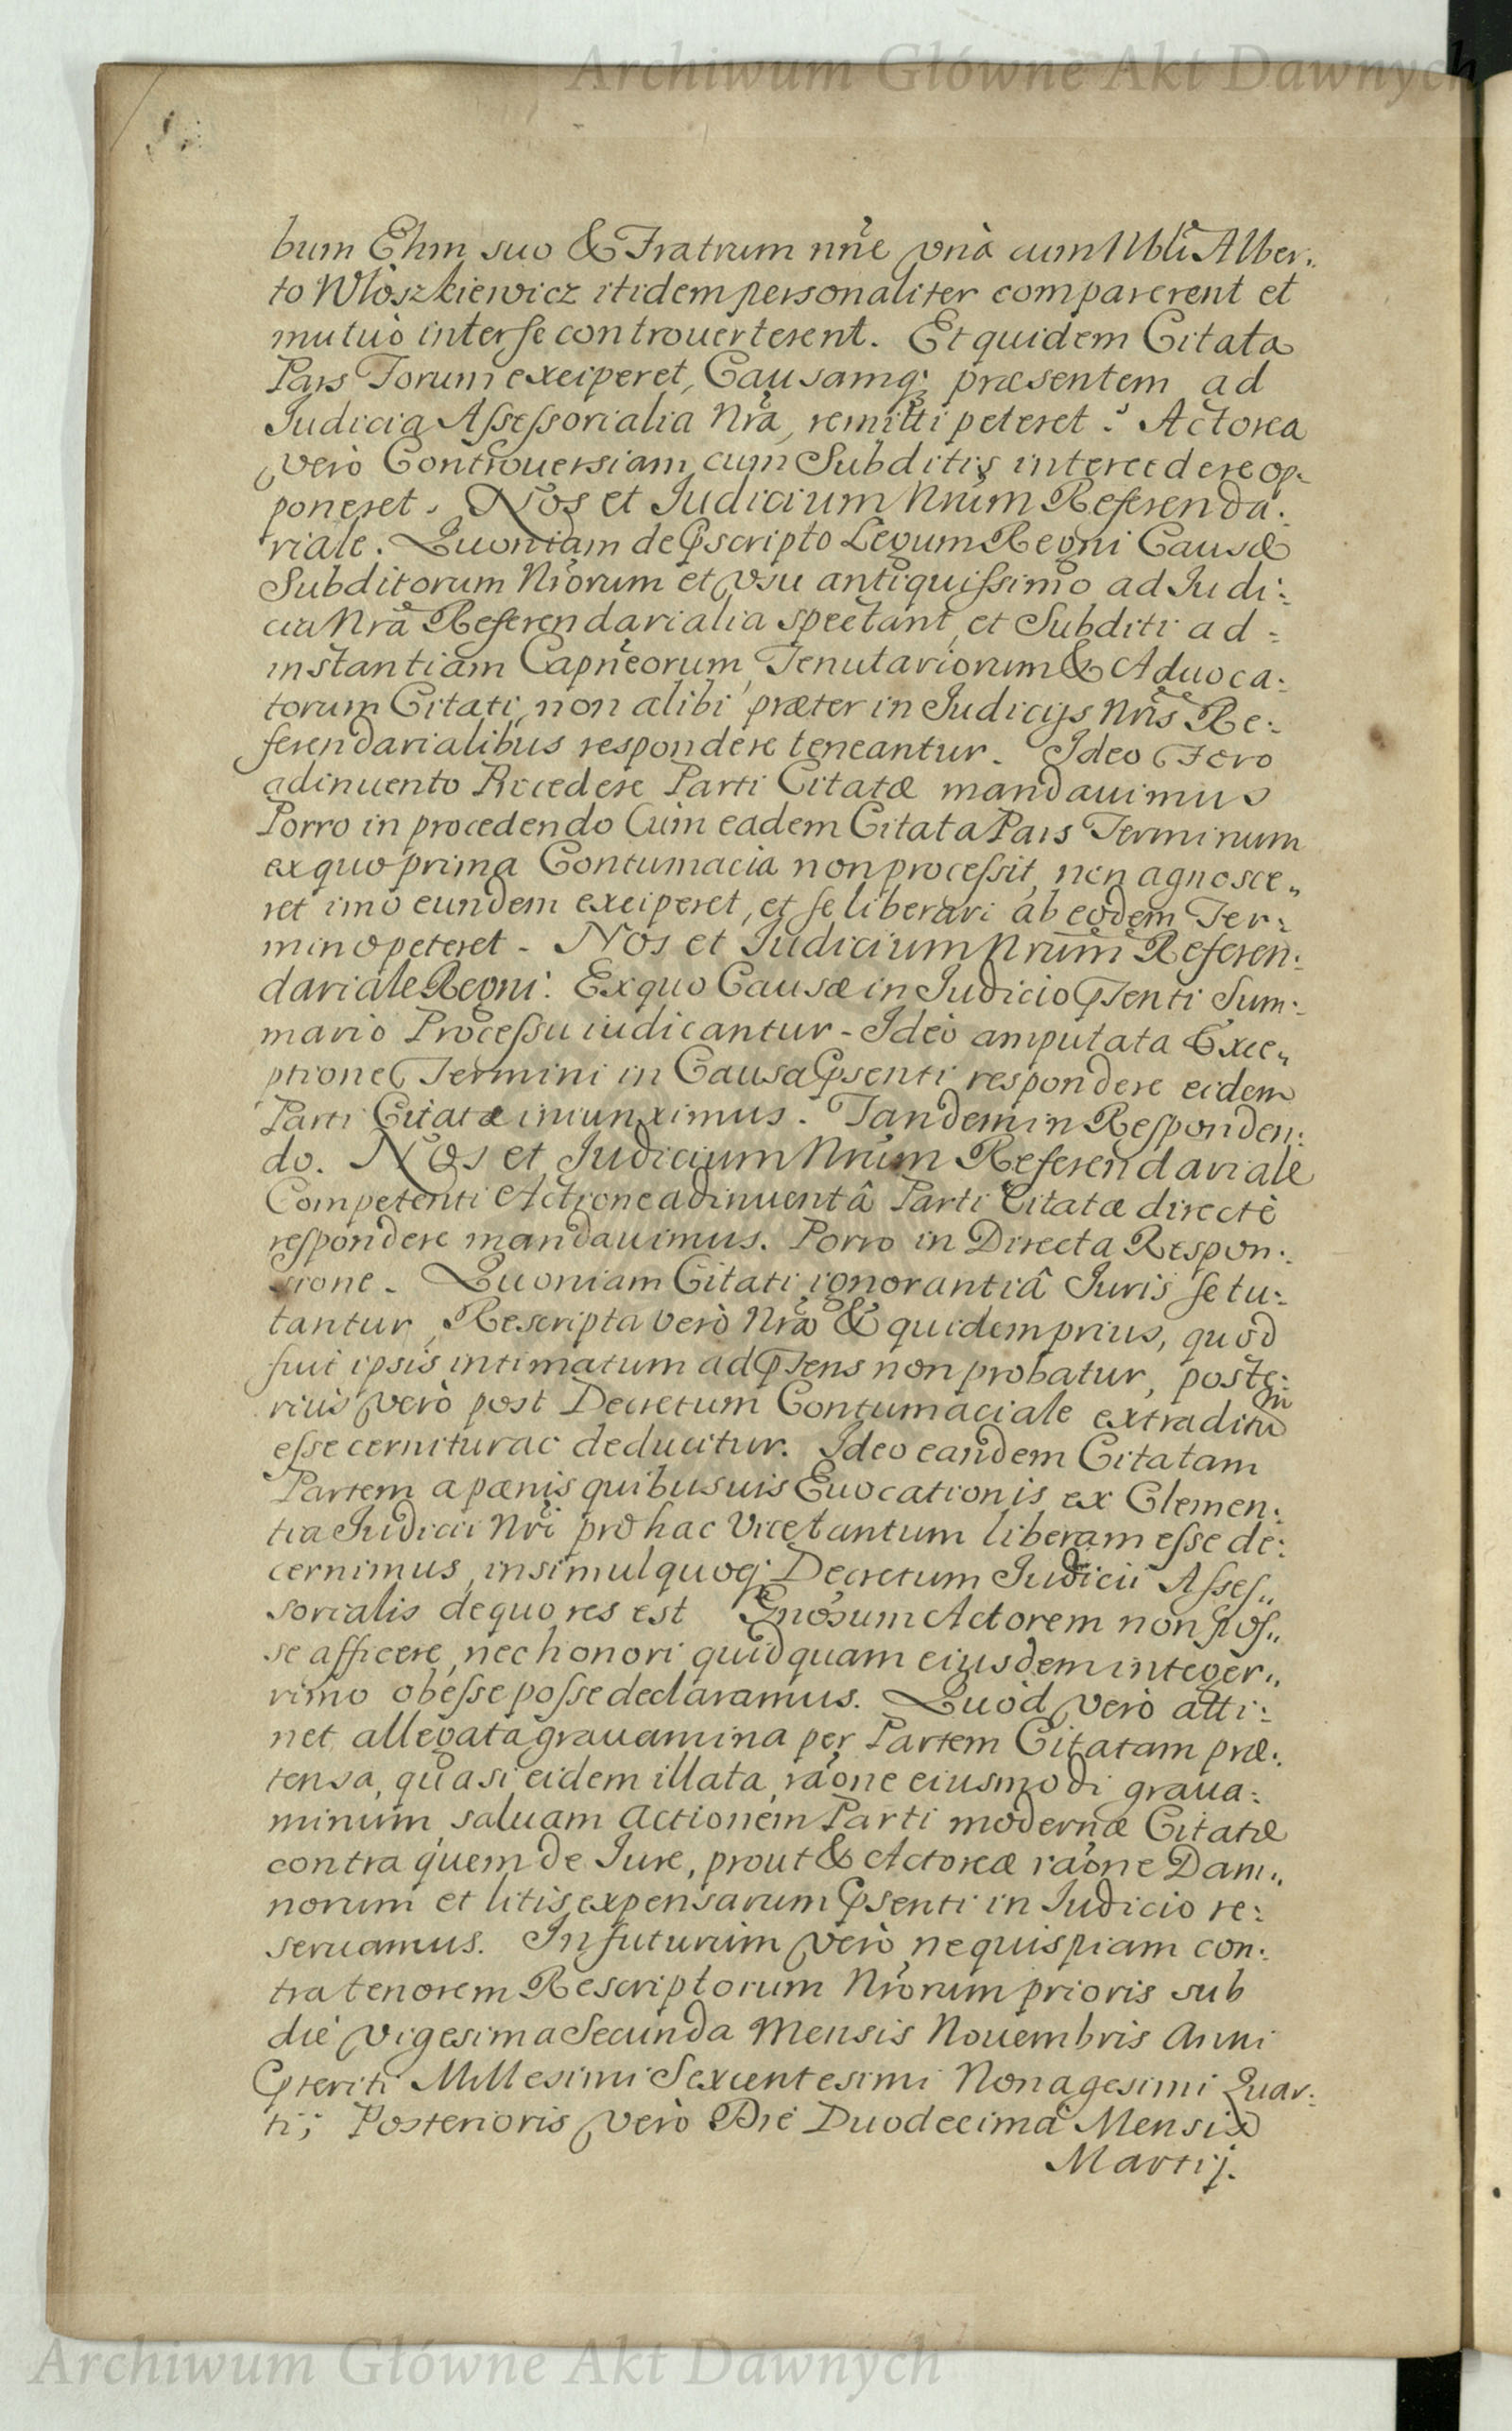 Archiwum Główne Akt Dawnych
bum Ehm suo & Fratrum nñe vnà cum Nbli Alber:
to Włoszkiewicz itidem personaliter comparerent et
mutuò inter se controuerterent. Et quidem Citata
Pars Forum exciperet, Causamq; præsentem ad
Judicia Assessorialia Nrã, remitti peteret: Actorea
verò Controuersiam cum Subditis intercedere op:
poneret. Nos et Judicium Nrũm Referenda:
riale. Quoniam de Pscripto Legum Regni Causæ
Subditorum Nrõrum et vsu antiquissimo ad Judi:
cia Nrã Referendarialia spectant, et Subditi ad
instantiam Capñeorum, Tenutariorum & Aduoca:
torum Citati, non alibi præter in Judicijs Nrĩs Re:
ferendarialibus respondere teneantur. Ideo Foro
adinuento Procedere Parti Citatæ mandauimus
Porro in procedendo Cum eadem Citata Pars Terminum
ex quo prima Contumacia non processit, non agnosce„
ret imò eundem exciperet, et se liberari ab eodem Ter:
mino peteret. Nos et Judicium Nrũm Referen:
dariale Regni: Ex quo Causæ in Judicio Psenti Sum:
mario Processu iudicantur. Ideò amputata Exce„
ptione Termini in Causa Psenti respondere eidem
Parti Citatæ iniunximus. Tandem in Responden:
do. Nos et Judicium Nrũm Referendariale
Competenti Actione adinuentâ Parti Citatæ directè
respondere mandauimus. Porro in Directa Respon:
sione. Quoniam Citati ignorantiâ Juris se tu:
tantur, Rescripta verò Nrã & quidem prius, quod
fuit ipsis intimatum ad Psens non probatur, poste:
rius verò post Decretum Contumaciale extraditum
esse cernitur ac deducitur. Ideo eandem Citatam
Partem a pænis quibusuis Euocationis ex Clemen:
tia Judicii Nrĩ pro hac Vice tantum liberam esse de:
cernimus, insimul quoq; Decretum Judicii Asses„
sorialis de quo res est Gnõsum Actorem non pos„
se afficere, nec honori quidquam eiusdem integer„
rimo obesse posse declaramus. Quod verò atti:
net allegata grauamina per Partem Citatam præ:
tensa, quasi eidem illata, raõne eiusmodi graua:
minum, saluam actionem Parti modernæ Citatæ
contra quem de Jure, prout & Actoreæ raõne Dam„
norum et litis expensarum Psenti in Judicio re:
seruamus. In futurum verò, ne quispiam con:
tra tenorem Rescriptorum Nrõrum prioris sub
die vigesima Secunda Mensis Nouembris Anni
Pteriti Millesimi Sexcentesimi Nonagesimi Quar:
ti; Posterioris verò Die Duodecima Mensis
Martij.
Archiwum Główne Akt Dawnych